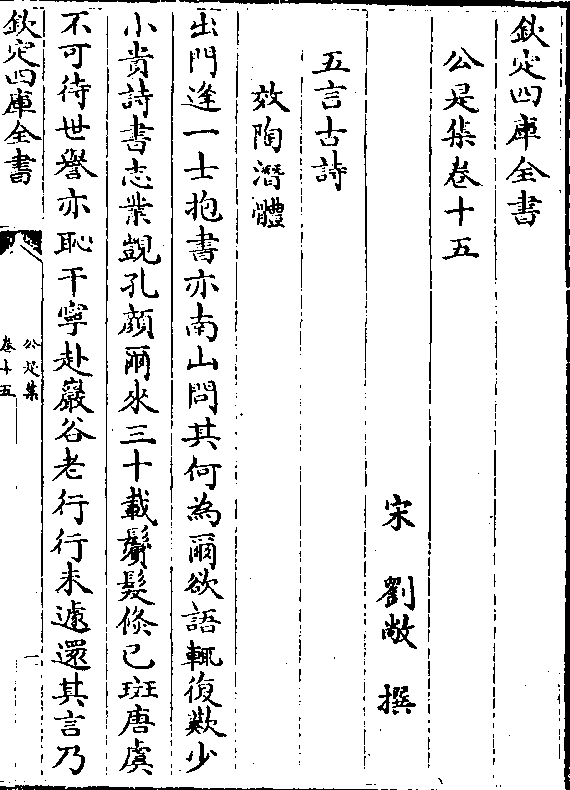 欽定四庫全書
公是集卷十五
宋　劉敞　撰
五言古詩
效陶潛體
出門逢一士抱書亦南山問其何為爾欲語輒復歎少
小貴詩書志業覬孔顏爾來三十載鬢髮倐已斑唐虞
不可待世譽亦恥干寧赴巖谷老行行未遽還其言乃
欽定四庫全書
公是集
卷十五
一